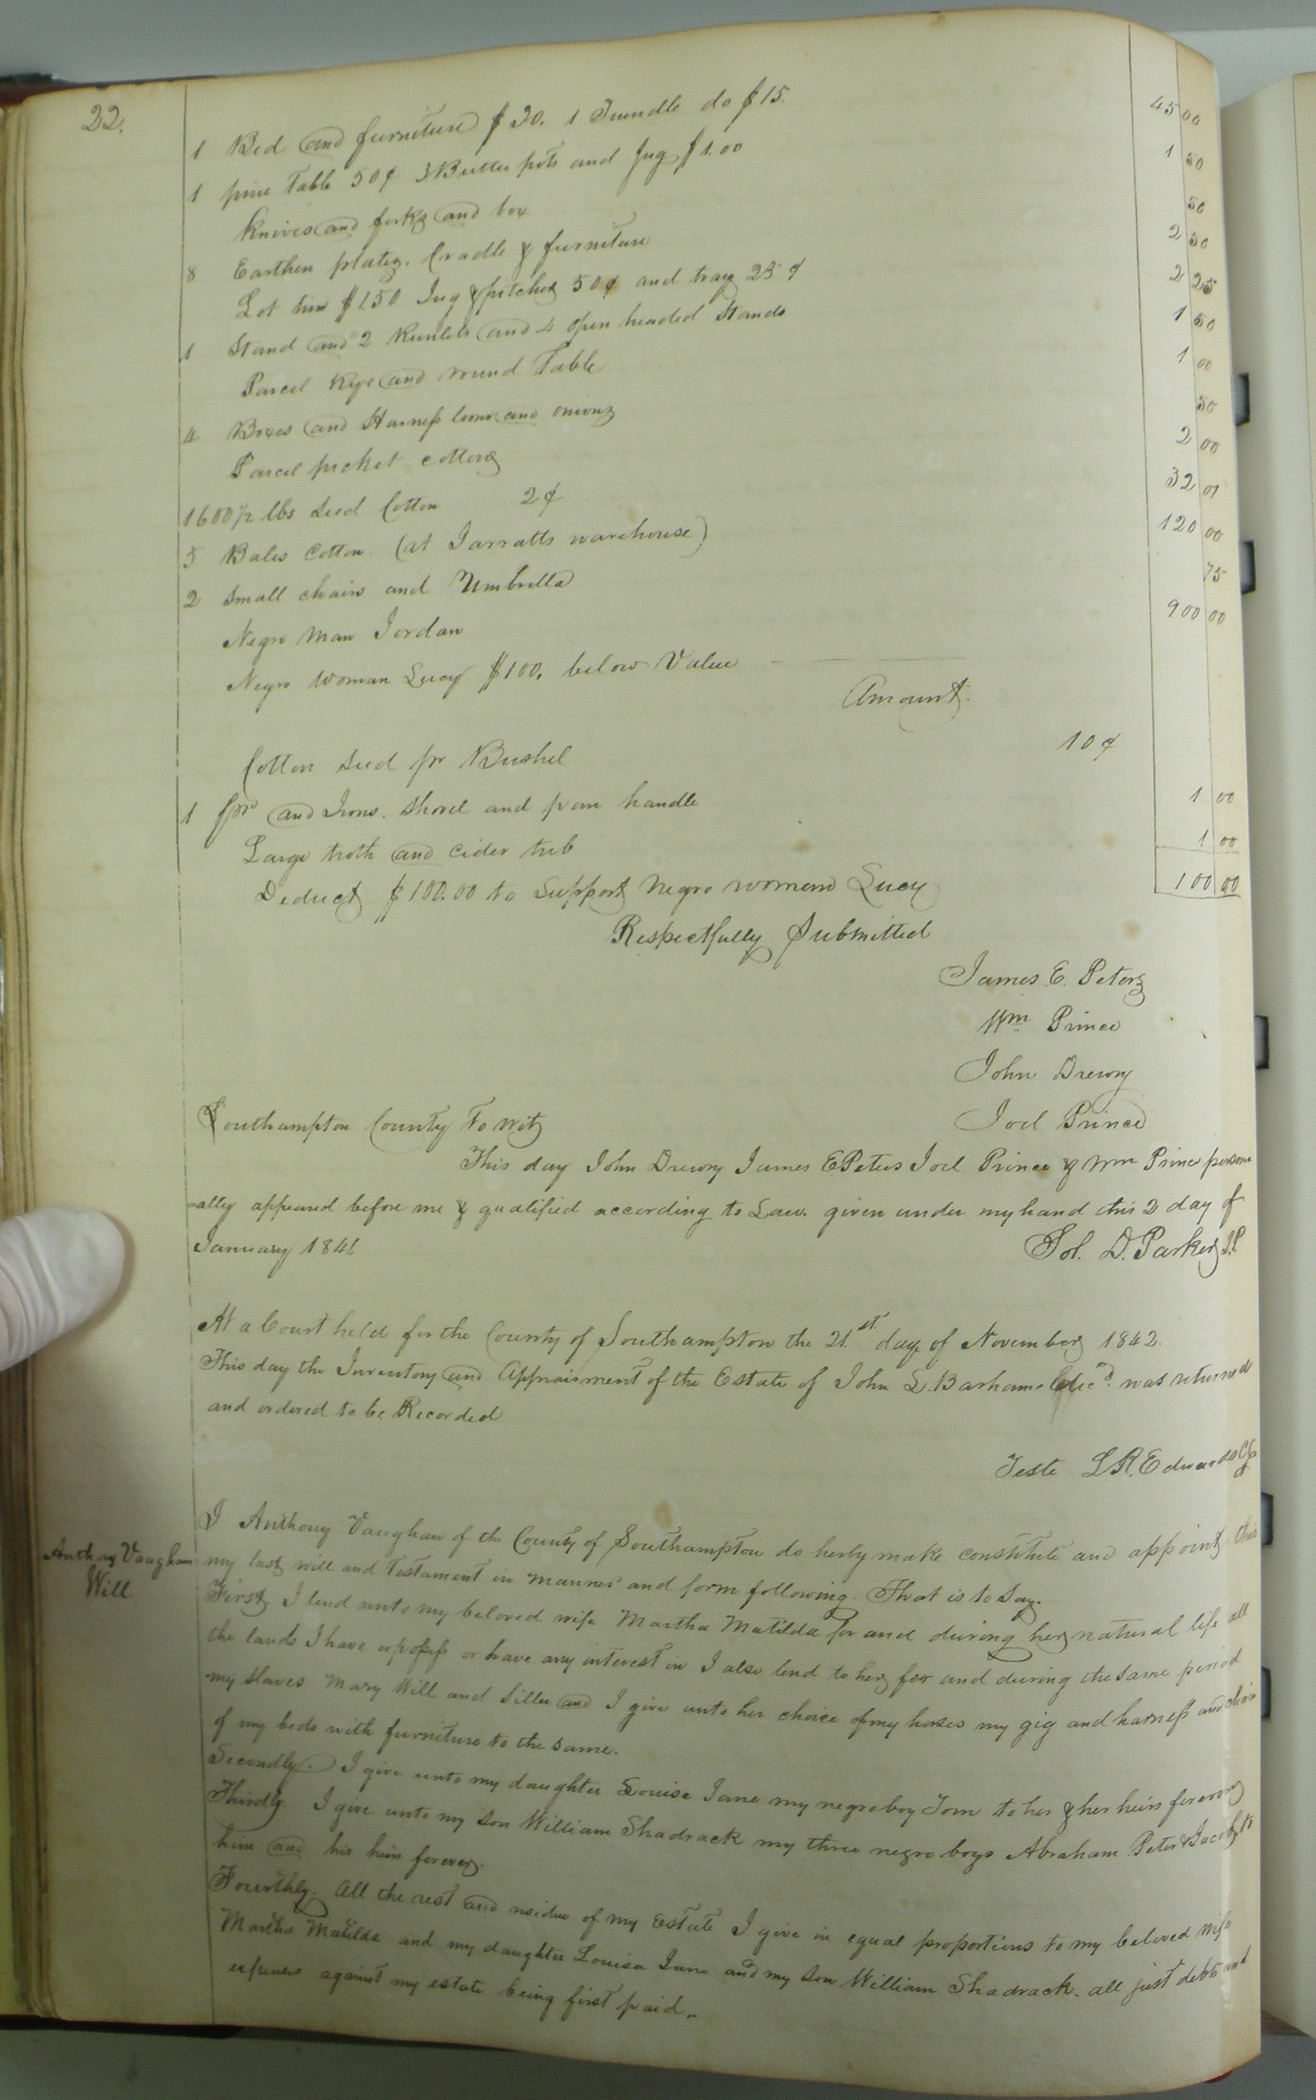 22.
1 Bed and furniture $30. 1 Trundle do $15. 45 00
1 pine Table 50¢ 3 Butter pots and Jug $1.00 1 50
Knives and forks and box 50
8 Earthen plates. Cradle & furniture 2 50
Lot tin $1.50 Jug & pitcher 50¢ and tray 25¢ 2 25
1 Stand and 2 Runlets and 4 open headed Stands 1 50
Parcel Rye and round Table 1 00
4 Boxes and Harness loom and onions 50
Parcel picket cotton 2 00
1600½ lbs Seed Cotton 2¢ 32 01
5 Bales Cotton (at Jarratts warehouse) 120 00
2 Small chairs and Umbrella 75
Negro Man Jordan 900 00
Negro Woman Lucy $100. below Value
Amount.
Cotton Seed pr Bushel 10¢
1 pr and Irons. Shovel and pan handle 1 00
Large troth and cider tub 1 00
Deduct $100.00 to Support Negro woman Lucy 100 00
Respectfully Submitted
James E. Peters
Wm Prince
John Drewry
Joel Prince
Southampton County To wit
This day John Drewry James E Peters Joel Prince & Wm Prince person
-ally appeared before me & qualified according to Law. given under my hand this 2 day of
January 1841
Sol. D. Parker J.P.
At a Court held for the County of Southampton the 21st. day of November 1842.
This day the Inventory and Appraisment of the Estate of John L. Barham decd. was returned
and ordered to be Recorded
Teste L R. Edwards Clk
Anthony Vaughan
Will
I Anthony Vaughan of the County of Southampton do herby make constitute and appoint this
my last will and Testament in manner and form following. That is to Say.
First, I lend unto my beloved wife Martha Matilda for and during her natural life all
the lands I have or possess or have any interest in I also lend to her for and during the same period
my slaves Mary Will and Siller and I give unto her choice of my horses my gig and harness and choice
of my beds with furniture to the same.
Secondly. I give unto my daughter Louisa Jane my negro boy Tom to her & her heirs forever
Thirdly. I give unto my son William Shadrack my three negro boys Abraham Peter & Jacob to
him and his heirs forever.
Fourthly. All the rest and residue of my Estate I give in equal proportions to my beloved wife
Martha Matilda and my daughter Louisa Jane and my son William Shadrack. all just debts and
expenses against my estate being first paid.